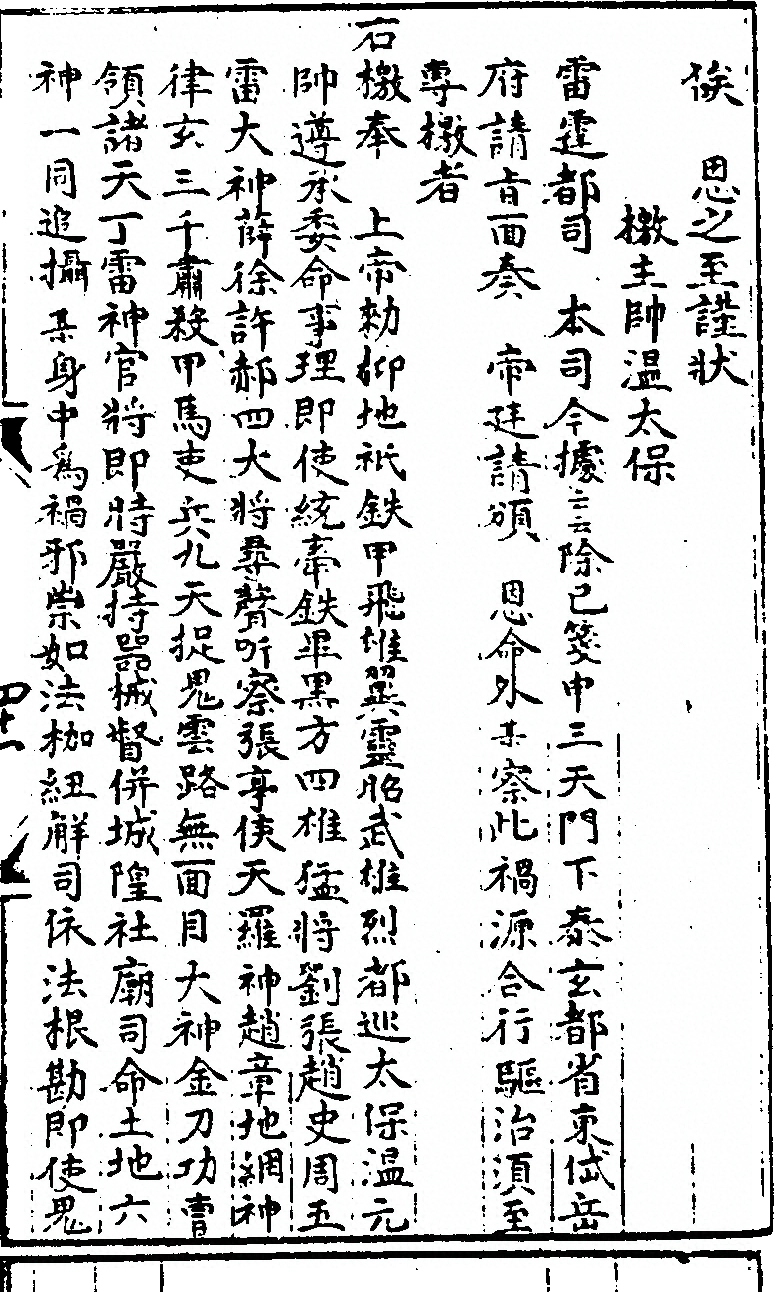 俟　恩之至謹狀
檄主帥温太保
雷霆都司　本司今據云云除已箋申三天門下泰玄都省東岱岳
府請旨面奏　帝廷請頒　恩命外某察此禍源合行驅治須至
專檄者
右檄奉　上帝勑仰地祇鉄甲飛雄翼靈昭武雄烈都巡太保温元
帥遵承委命事理即使統率鉄軰黑方四雄猛將劉張趙史周五
雷大神薛徐許郝四大將彞聲听察張亭使天羅神趙章地網神
律玄三千肅殺甲馬吏兵九天捉鬼雲路無面目大神金刀功曹
領諸天丁雷神官將即時嚴持噐械督併城隍社廟司命土地六
神一同追攝某身中爲禍邪祟如法枷紐解司依法根勘即使鬼
四十一